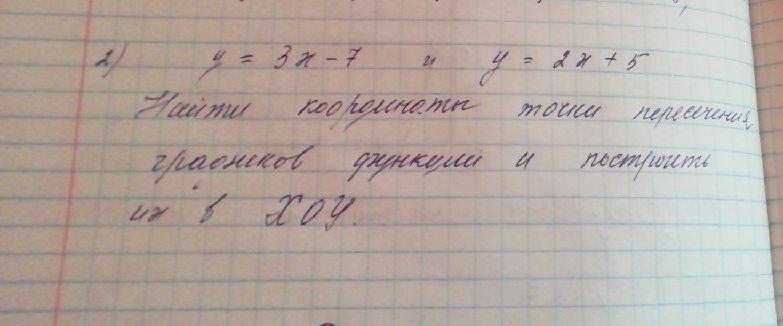 2) y = 3x - 7 и y = 2x + 5
Найти координаты точки пересечения
графиков функций и построить
их в XOY.